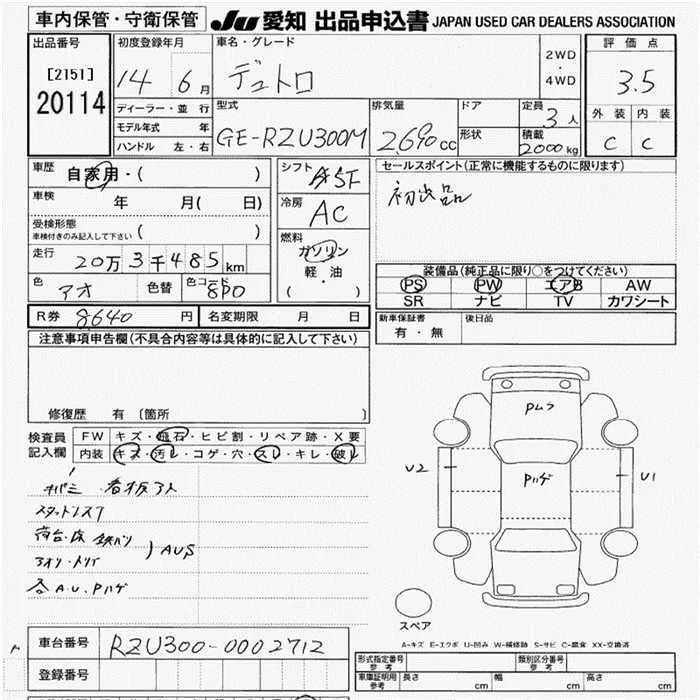 車内保管・守衛保管 JU 愛知 出品申込書 JAPAN USED CAR DEALERS ASSOCIATION
出品番号 [2151] 20114
初度登録年月 14 6月
車名・グレード デュトロ
2WD・4WD
評価点 3.5
外装 C 内装 C
ディーラー・並行
モデル年式 年
ハンドル 左・右
型式 GE-RZU300M
排気量 2,690cc
ドア
形状
定員 3人
積載 2000kg
車歴 自家用・( )
車検 年 月( 日)
受検形態 車検付きのみ記入して下さい ( )
走行 20万3千485km
色 アオ 色替 色コード 8P0
シフト A5F
冷房 AC
燃料 ガソリン
軽・油
( ・ )
セールスポイント(正常に機能するものに限ります)
初出品
装備品(純正品に限り○をつけてください)
PS PW エアB AW
SR ナビ TV カワシート
R券 8640円 名変期限 月 日
新車保証書 有・無 後日品
注意事項申告欄(不具合内容等は具体的に記入して下さい)
修復歴 有 [箇所 ]
検査員記入欄
FW キズ・飛石・ヒビ割・リペア跡・X要
内装 キズ・汚レ・コゲ・穴・スレ・キレ・破レ
看板アト
スタットレス
荷台・床 鉄バリ
アオリ・トリイ
AUS
各A.U.Pハゲ
Pムラ
Pハゲ
U2
U1
スペア
A-キズ E-エクボ U-凹み W-補修跡 S-サビ C-腐食 XX-交換済
車台番号 RZU300-0002712
登録番号
形式指定番号 参考 類別区分番号 参考
車庫証明用 参考 長さ cm 幅 cm 高さ cm